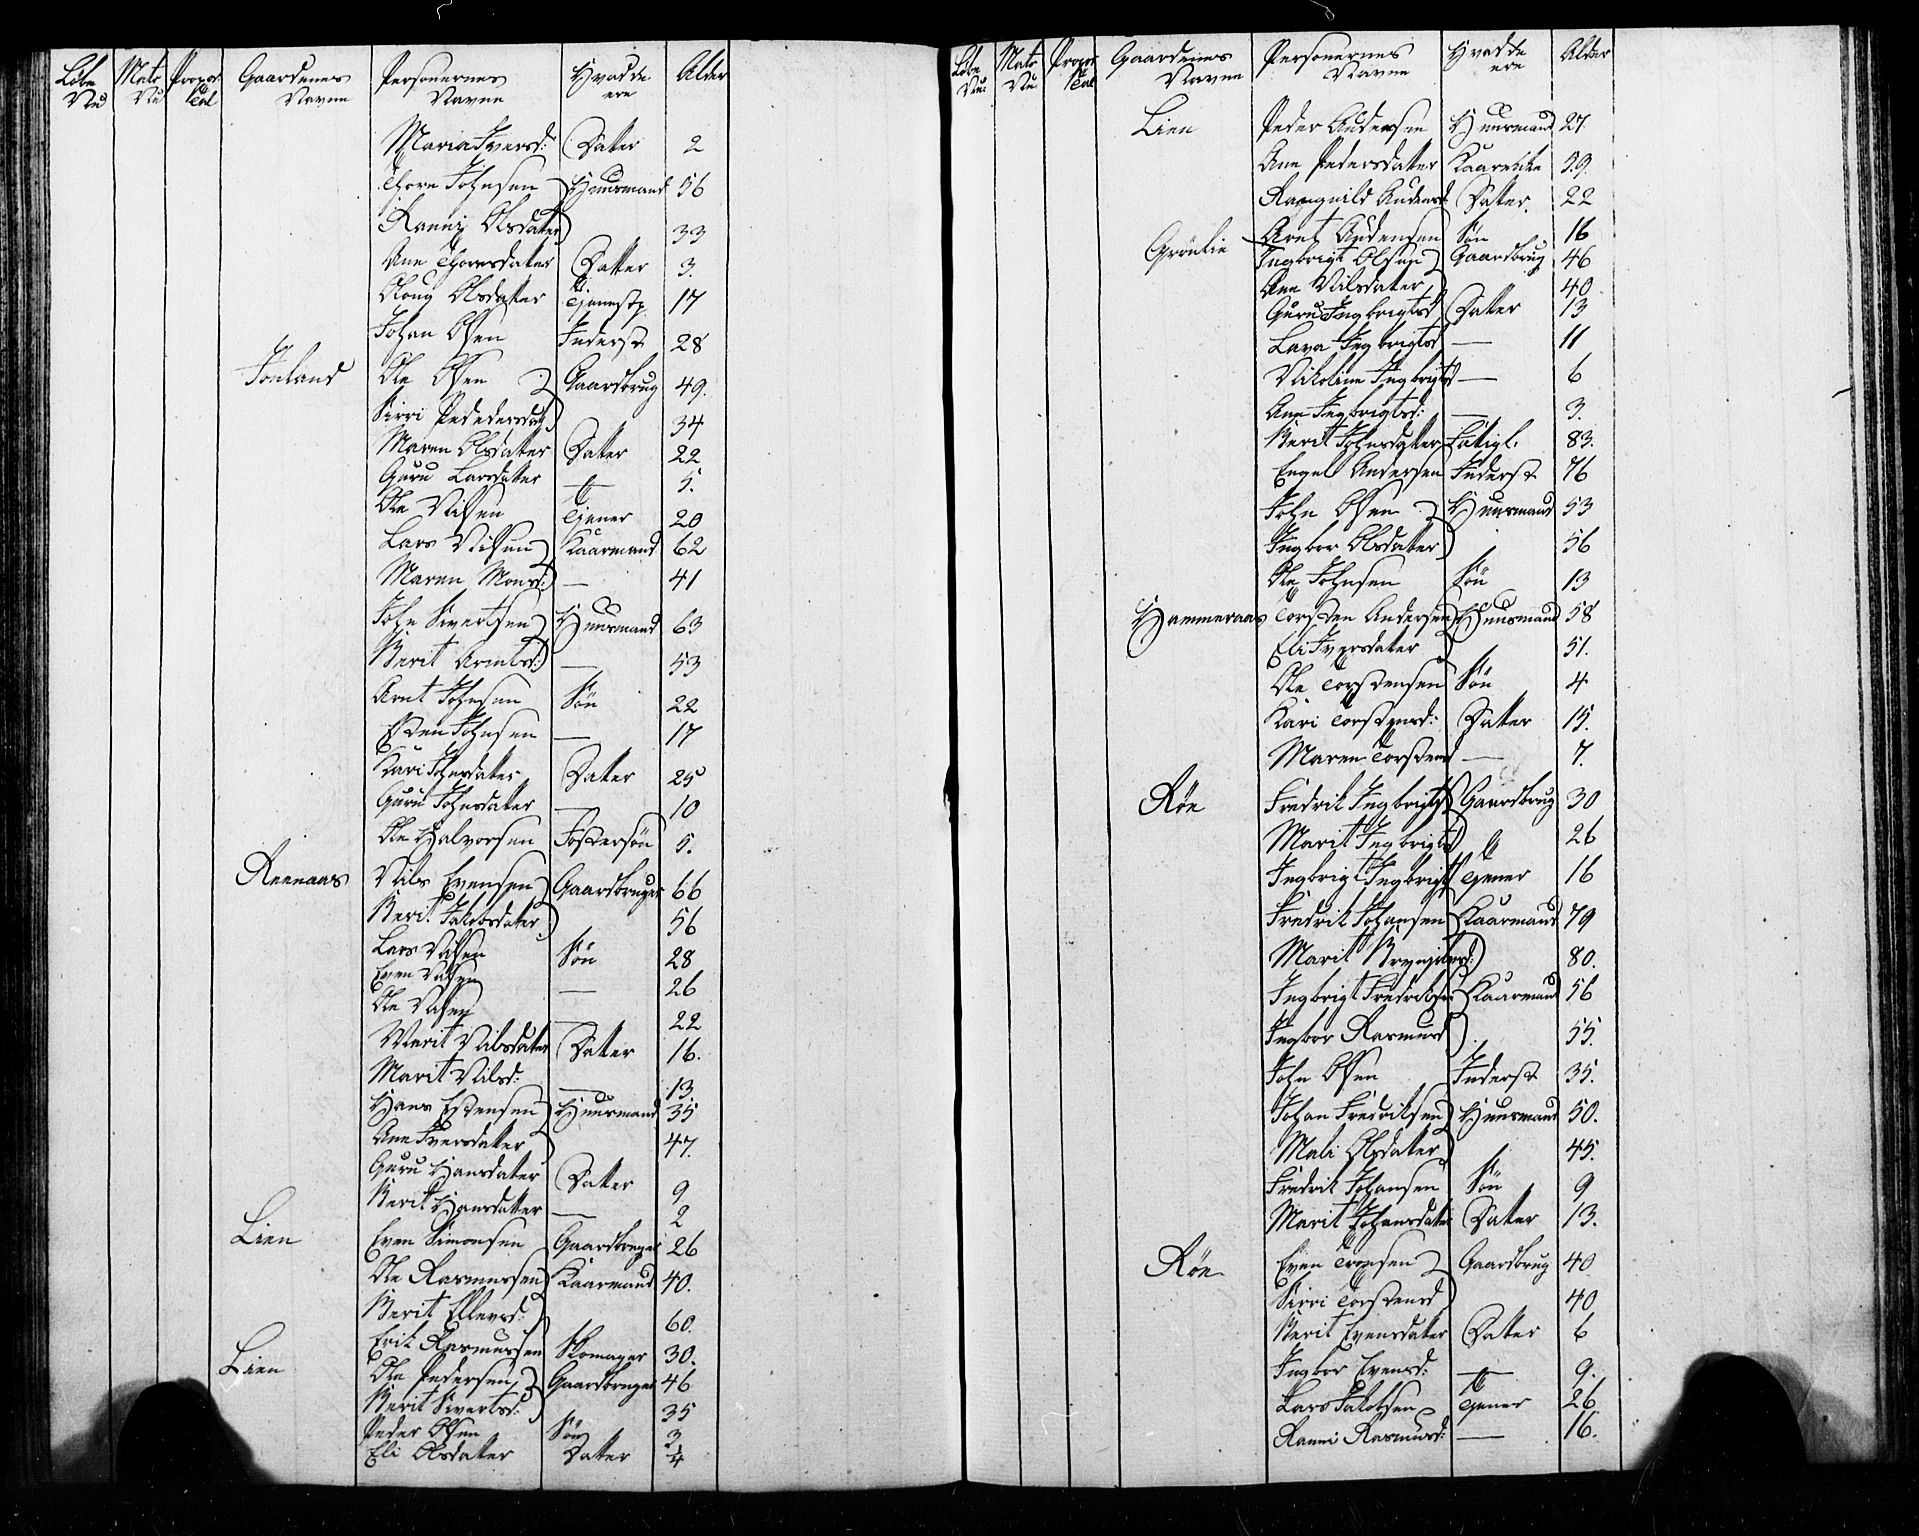 Løbe Nu Matr Nu Propor tal Gaardenes Navne Personernes Navne Hvad de ere Alder
Maria Iversd: Datter 2
Thore Johnsen Huusmand 56
Ranni Olsdatter 33
Ane Thoresdatter Datter 3.
Olsdatter 17
Johan Olsen Inderst 28
Ole Olsen Gaardbrug 49.
Sirri 34
Maren Olsdatter Datter 22
Guru Larsdatter — 5.
Ole Nilsen Tjener 20
Lars Nilsen Kaarmand 62
Maren Monsd: — 41
John Sivertsen Huusmand 63
Berit Arntsd: — 53
Arnt Johnsen Søn 22
Esten Johnsen — 17
Kari Johnsdatter Datter 25
Guru Johnsdatter — 10
Ole Halvorsen Fostersøn 5.
Aaenaas Nils Evensen Gaardbruger 66
Berit Jakobsdatter 56
Lars Nilsen Søn 28
Even Nilsen — 26
Ole Nilsen — 22
Marit Nilsdatter Datter 16.
Marit Nilsd: — 13.
Hans Estensen Huusmand 35
Ane Iversdatter 47.
Guru Hansdatter Datter 9
Berit Hansdatter — 2
Lien Even Simonsen Gaardbruger 26
Ole Rasmussen Kaarmand 40.
Berit Ellevsd: 60.
Erik Rasmussen Skomager 30.
Lien Ole Pedersen Gaardbruger 46
Berit Sivertsd: 35
Peder Olsen Søn 3
Eli Olsdatter Datter 1/4
Løbe Nu: Matr Nu Propor tal Gaardenes Navne Personernes Navne Hvad de ere Alder
Lien Peder Andersen Huusmand 27.
Ane Pedersdatter 59.
Ragnild Andersd Datter. 22
Arnt Andersen Søn 16
Grønlie Ingbrigt Olsen Gaardbrug 46
Ane Nilsdatter 40
Guru Ingbrigtsd Datter 13
Lava Ingbrigtsd — 11
Nikoline Ingbrigtsd — 6
Ane Ingbrigtsd: — 3.
Berit Johnsdatter Fatigl. 83.
Engel Andersen Inderst 76
John Olsen Huusmand 53
Ingbor Olsdatter 56
Ole Johnsen Søn 13
Hammeraas Torsten Andersen Huusmand 58
Eli Iversdatter 51.
Ole Torstensen Søn 4
Kari Torstensd: Datter 15.
Maren Torstensd — 7.
Røe Fredrik Ingbrigts Gaardbrug 30
Marit Ingbrigtsd 26
Ingbrigt Ingbrigts Tjener 16
Fredrik Johansen Kaarmand 79
Marit 80.
Ingbrigt Fredriksen Kaarmand 56
Ingbor Rasmusd 55.
John Olsen Inderst 35.
Johan Fredriksen Huusmand 50.
Mali Olsdatter 45.
Fredrik Johansen Søn 9
Marit Johansdatter Datter 13.
Røe Even Gaardbrug 40
Sirri Torstensd 40
Berit Evensdatter Datter 6
Ingbor Evensd: — 9.
Lars Jakobsen Tjener 26
Ranni Rasmusd: — 16.